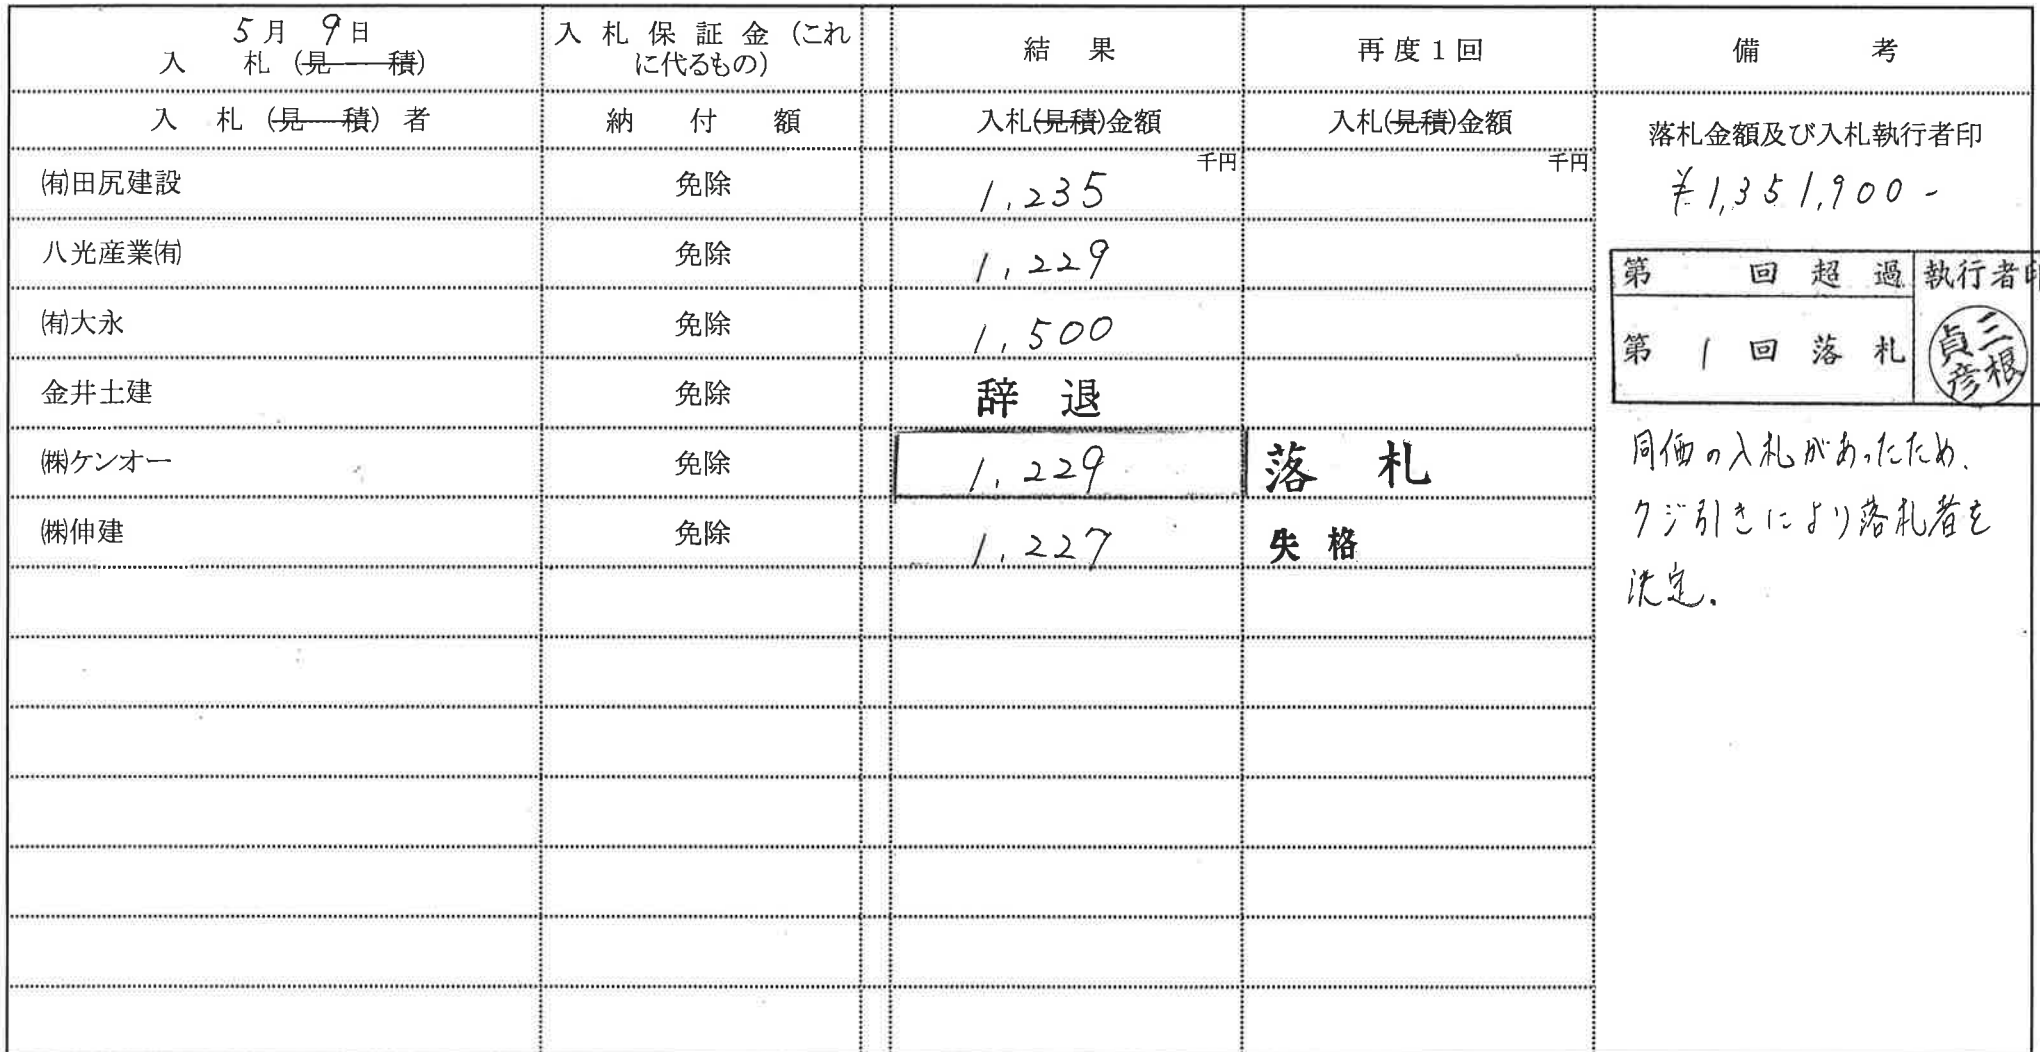 5月 9日 入札(見積) 入札保証金(これに代るもの) 結果 再度1回 備考
入札(見積)者 納付額 入札(見積)金額 入札(見積)金額 落札金額及び入札執行者印
千円 千円
㈲田尻建設 免除 1,235 ¥1,351,900-
八光産業㈲ 免除 1,229
第 回超過 執行者印
㈲大永 免除 1,500
第1回落札 三根貞彦
金井土建 免除 辞退
㈱ケンオー 免除 1,229 落札
㈱伸建 免除 1,227 失格
同価の入札があったため、
クジ引きにより落札者を
決定.